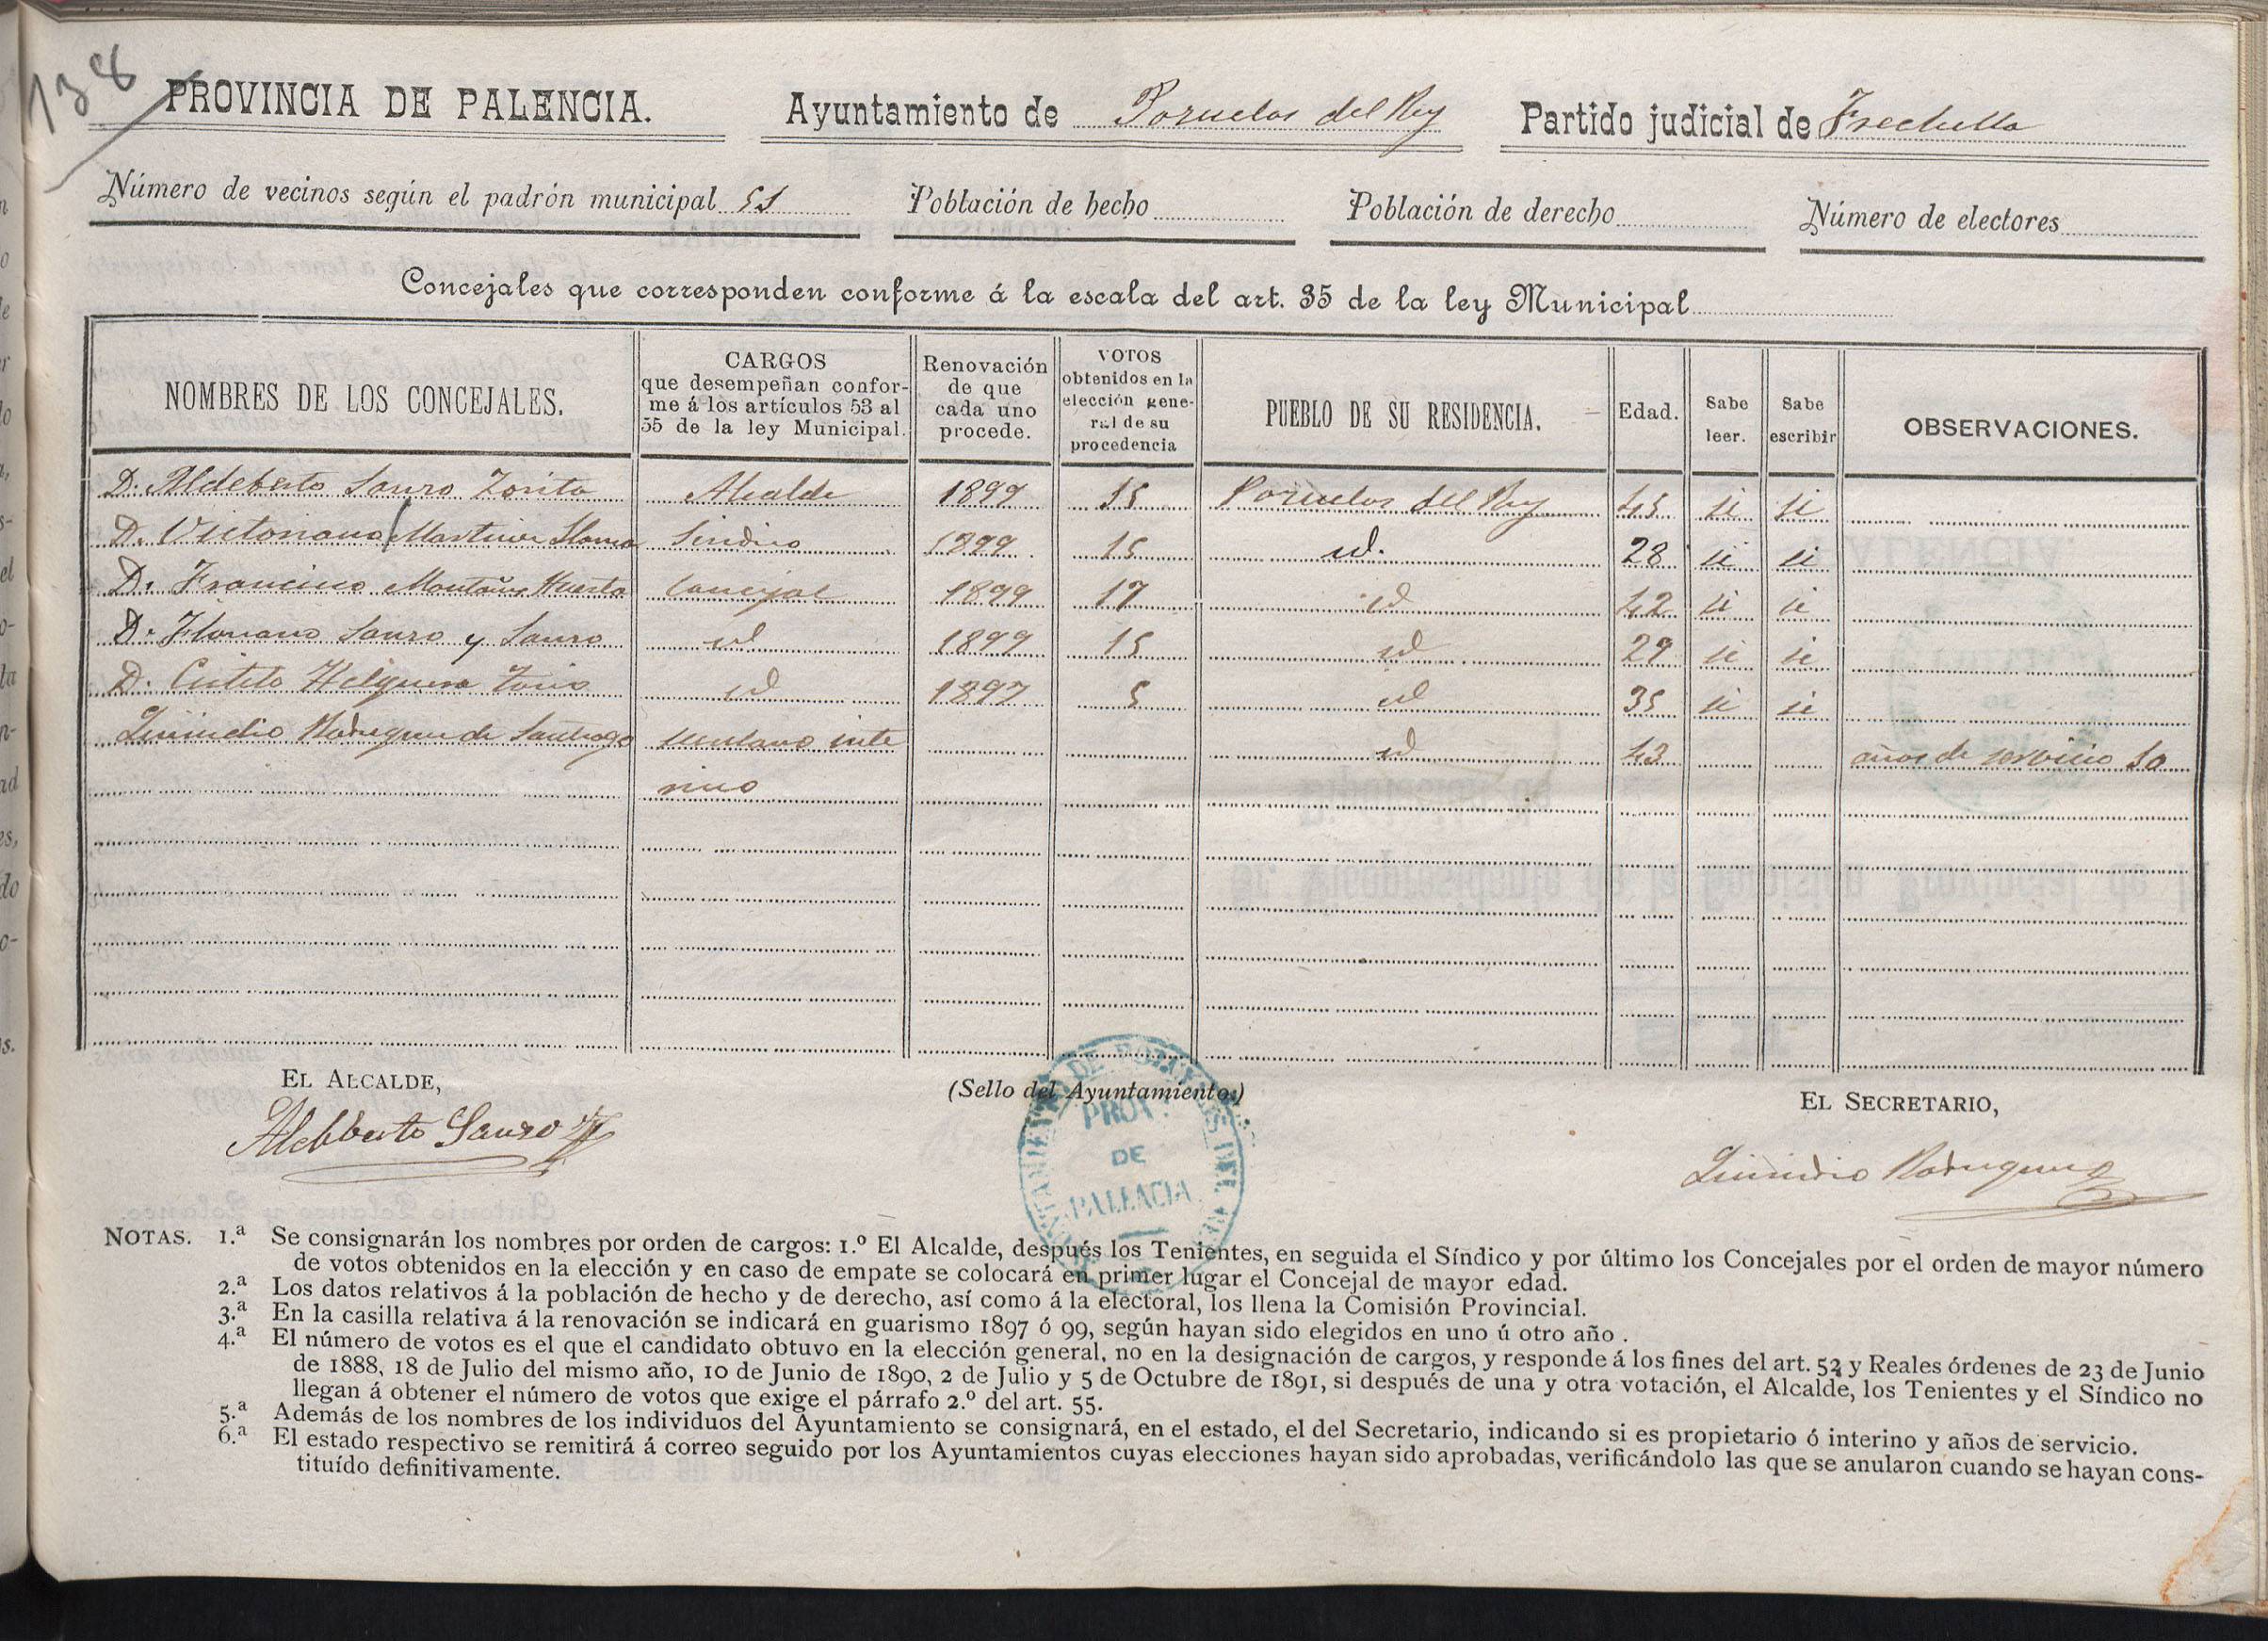 138
PROVINCIA DE PALENCIA. Ayuntamiento de Pozuelos del Rey Partido judicial de Frechilla
Número de vecinos según el padrón municipal 51 Población de hecho Población de derecho Número de electores
Concejales que corresponden conforme á la escala del art. 35 de la ley Municipal
NOMBRES DE LOS CONCEJALES. CARGOS que desempeñan conforme á los artículos 53 al 55 de la ley Municipal. Renovación de que cada uno procede. VOTOS obtenidos en la elección general de su procedencia PUEBLO DE SU RESIDENCIA. Edad. Sabe leer. Sabe escribir OBSERVACIONES.
D. Aldeberto Sauzo Zorita Alcalde 1899 15 Pozuelos del Rey 45 si si
D. Victoriano Martinez Síndico 1899 15 id. 28 si si
D. Francisco Huerta Concejal 1899 17 id 42 si si
D. Floriano Sauzo y Sauzo id 1899 15 id 29 si si
D. Helguera id 1897 5 id 35 si si
Rodriguez de Santiago secretario inte id 43 años de servicio 10
rino
EL ALCALDE, (Sello del Ayuntamiento.) EL SECRETARIO,
Aldeberto Sauzo Rodriguez
PROV.
DE
PALENCIA
NOTAS. 1.ª Se consignarán los nombres por orden de cargos: 1.º El Alcalde, después los Tenientes, en seguida el Síndico y por último los Concejales por el orden de mayor número
de votos obtenidos en la elección y en caso de empate se colocará en primer lugar el Concejal de mayor edad.
2.ª Los datos relativos á la población de hecho y de derecho, así como á la electoral, los llena la Comisión Provincial.
3.ª En la casilla relativa á la renovación se indicará en guarismo 1897 ó 99, según hayan sido elegidos en uno ú otro año.
4.ª El número de votos es el que el candidato obtuvo en la elección general, no en la designación de cargos, y responde á los fines del art. 52 y Reales órdenes de 23 de Junio
de 1888, 18 de Julio del mismo año, 10 de Junio de 1890, 2 de Julio y 5 de Octubre de 1891, si después de una y otra votación, el Alcalde, los Tenientes y el Síndico no
llegan á obtener el número de votos que exige el párrafo 2.º del art. 55.
5.ª Además de los nombres de los individuos del Ayuntamiento se consignará, en el estado, el del Secretario, indicando si es propietario ó interino y años de servicio.
6.ª El estado respectivo se remitirá á correo seguido por los Ayuntamientos cuyas elecciones hayan sido aprobadas, verificándolo las que se anularon cuando se hayan cons-
tituído definitivamente.